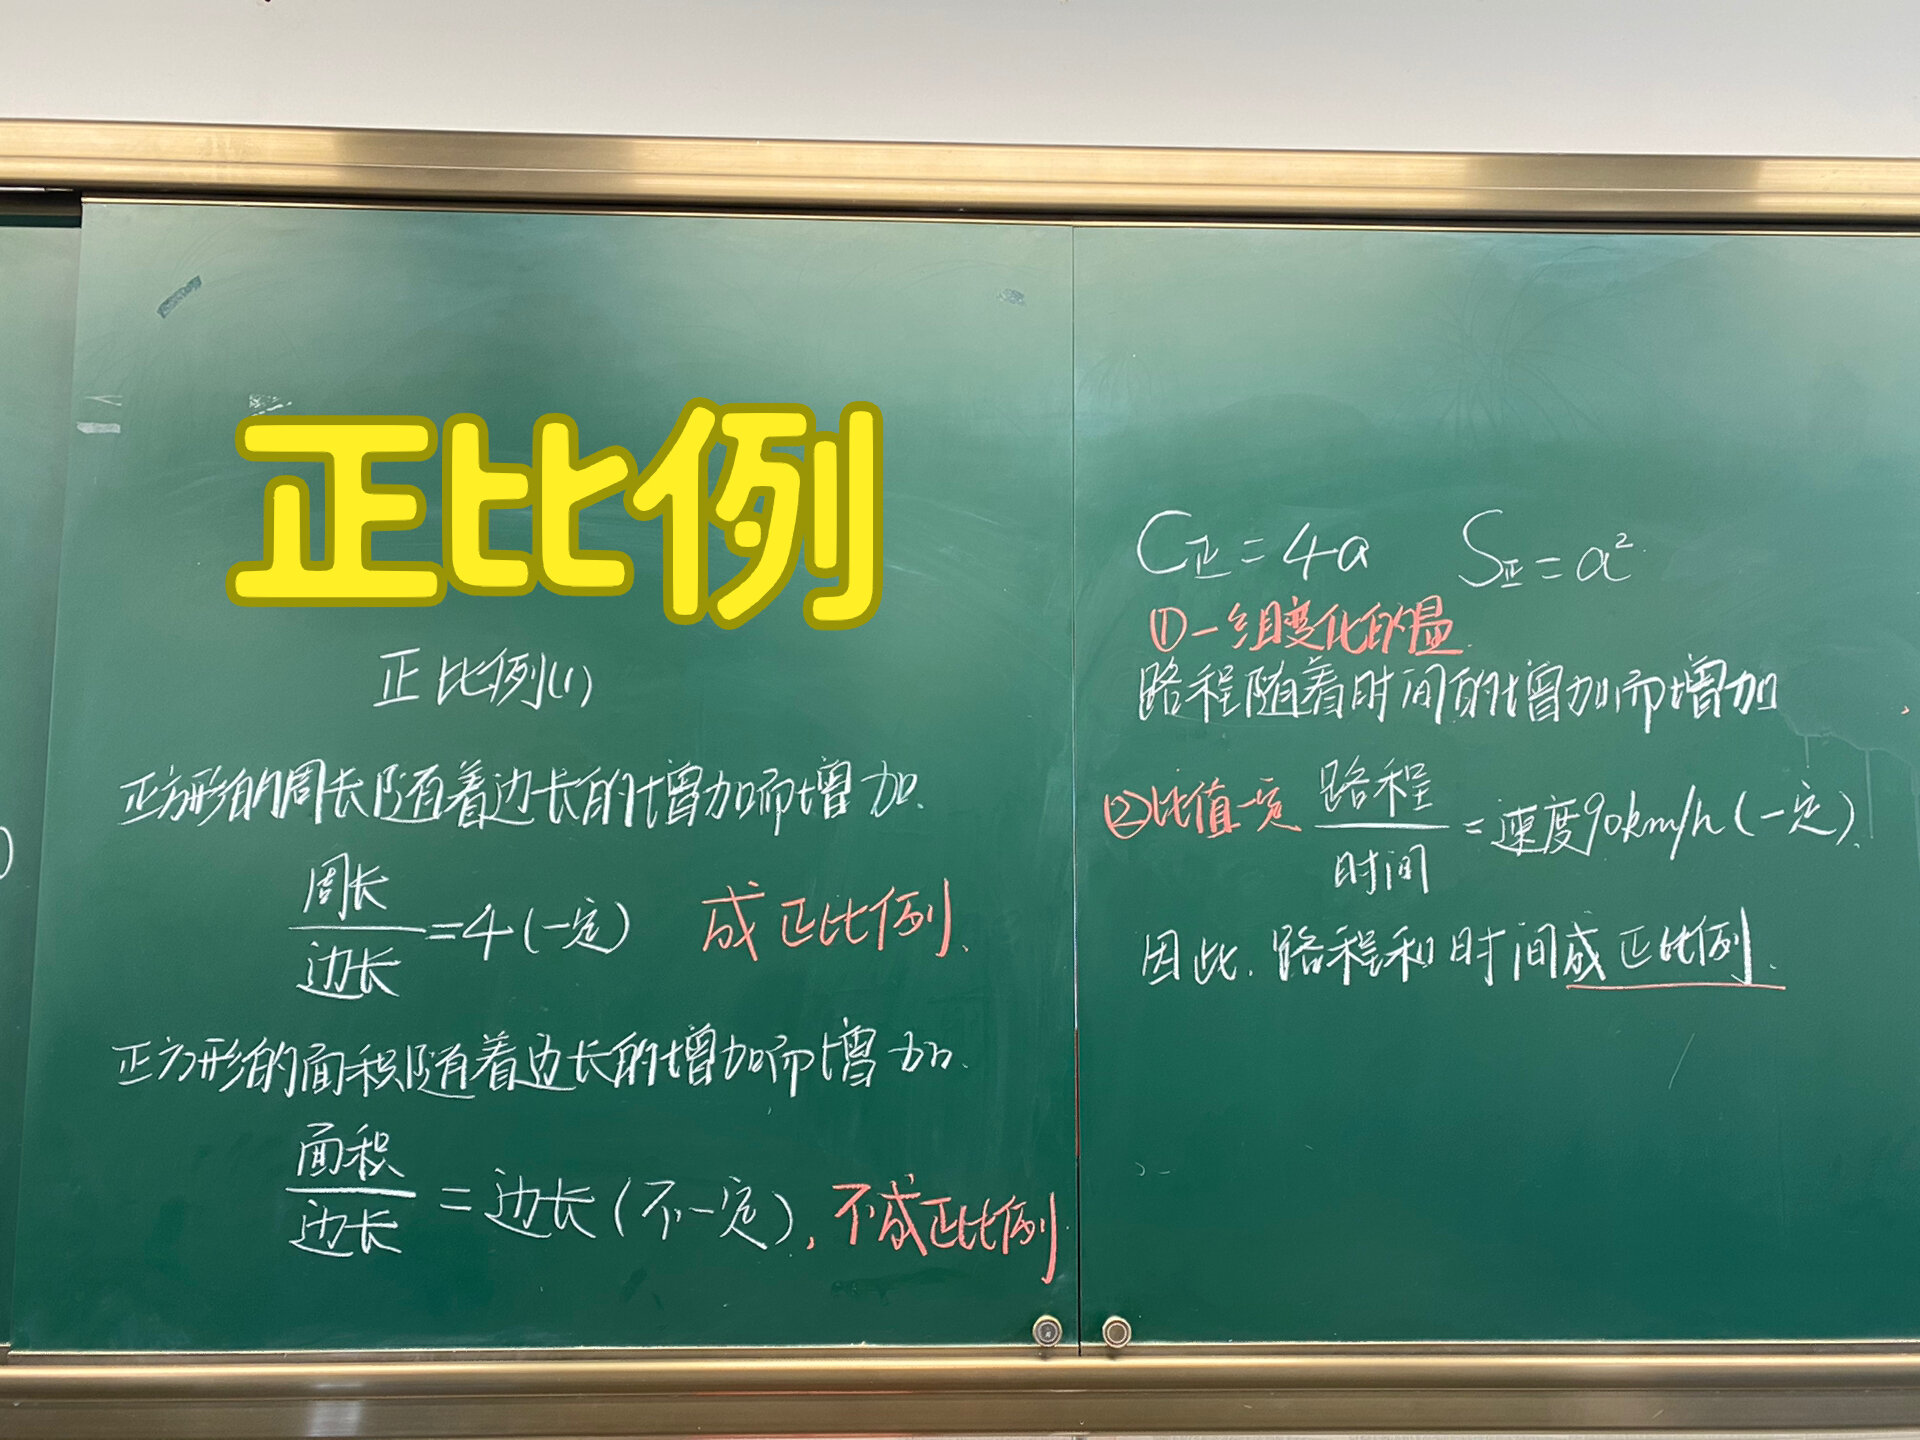 正比例
正比例(1)
正方形的周长随着边长的增加而增加.
周长
边长
=4(一定) 成正比例.
正方形的面积随着边长的增加而增加.
面积
边长
=边长(不一定),不成正比例
C正=4a S正=a²
①一组变化的量
路程随着时间的增加而增加
②比值一定
路程
时间
=速度90km/h(一定).
因此.路程和时间成正比例.